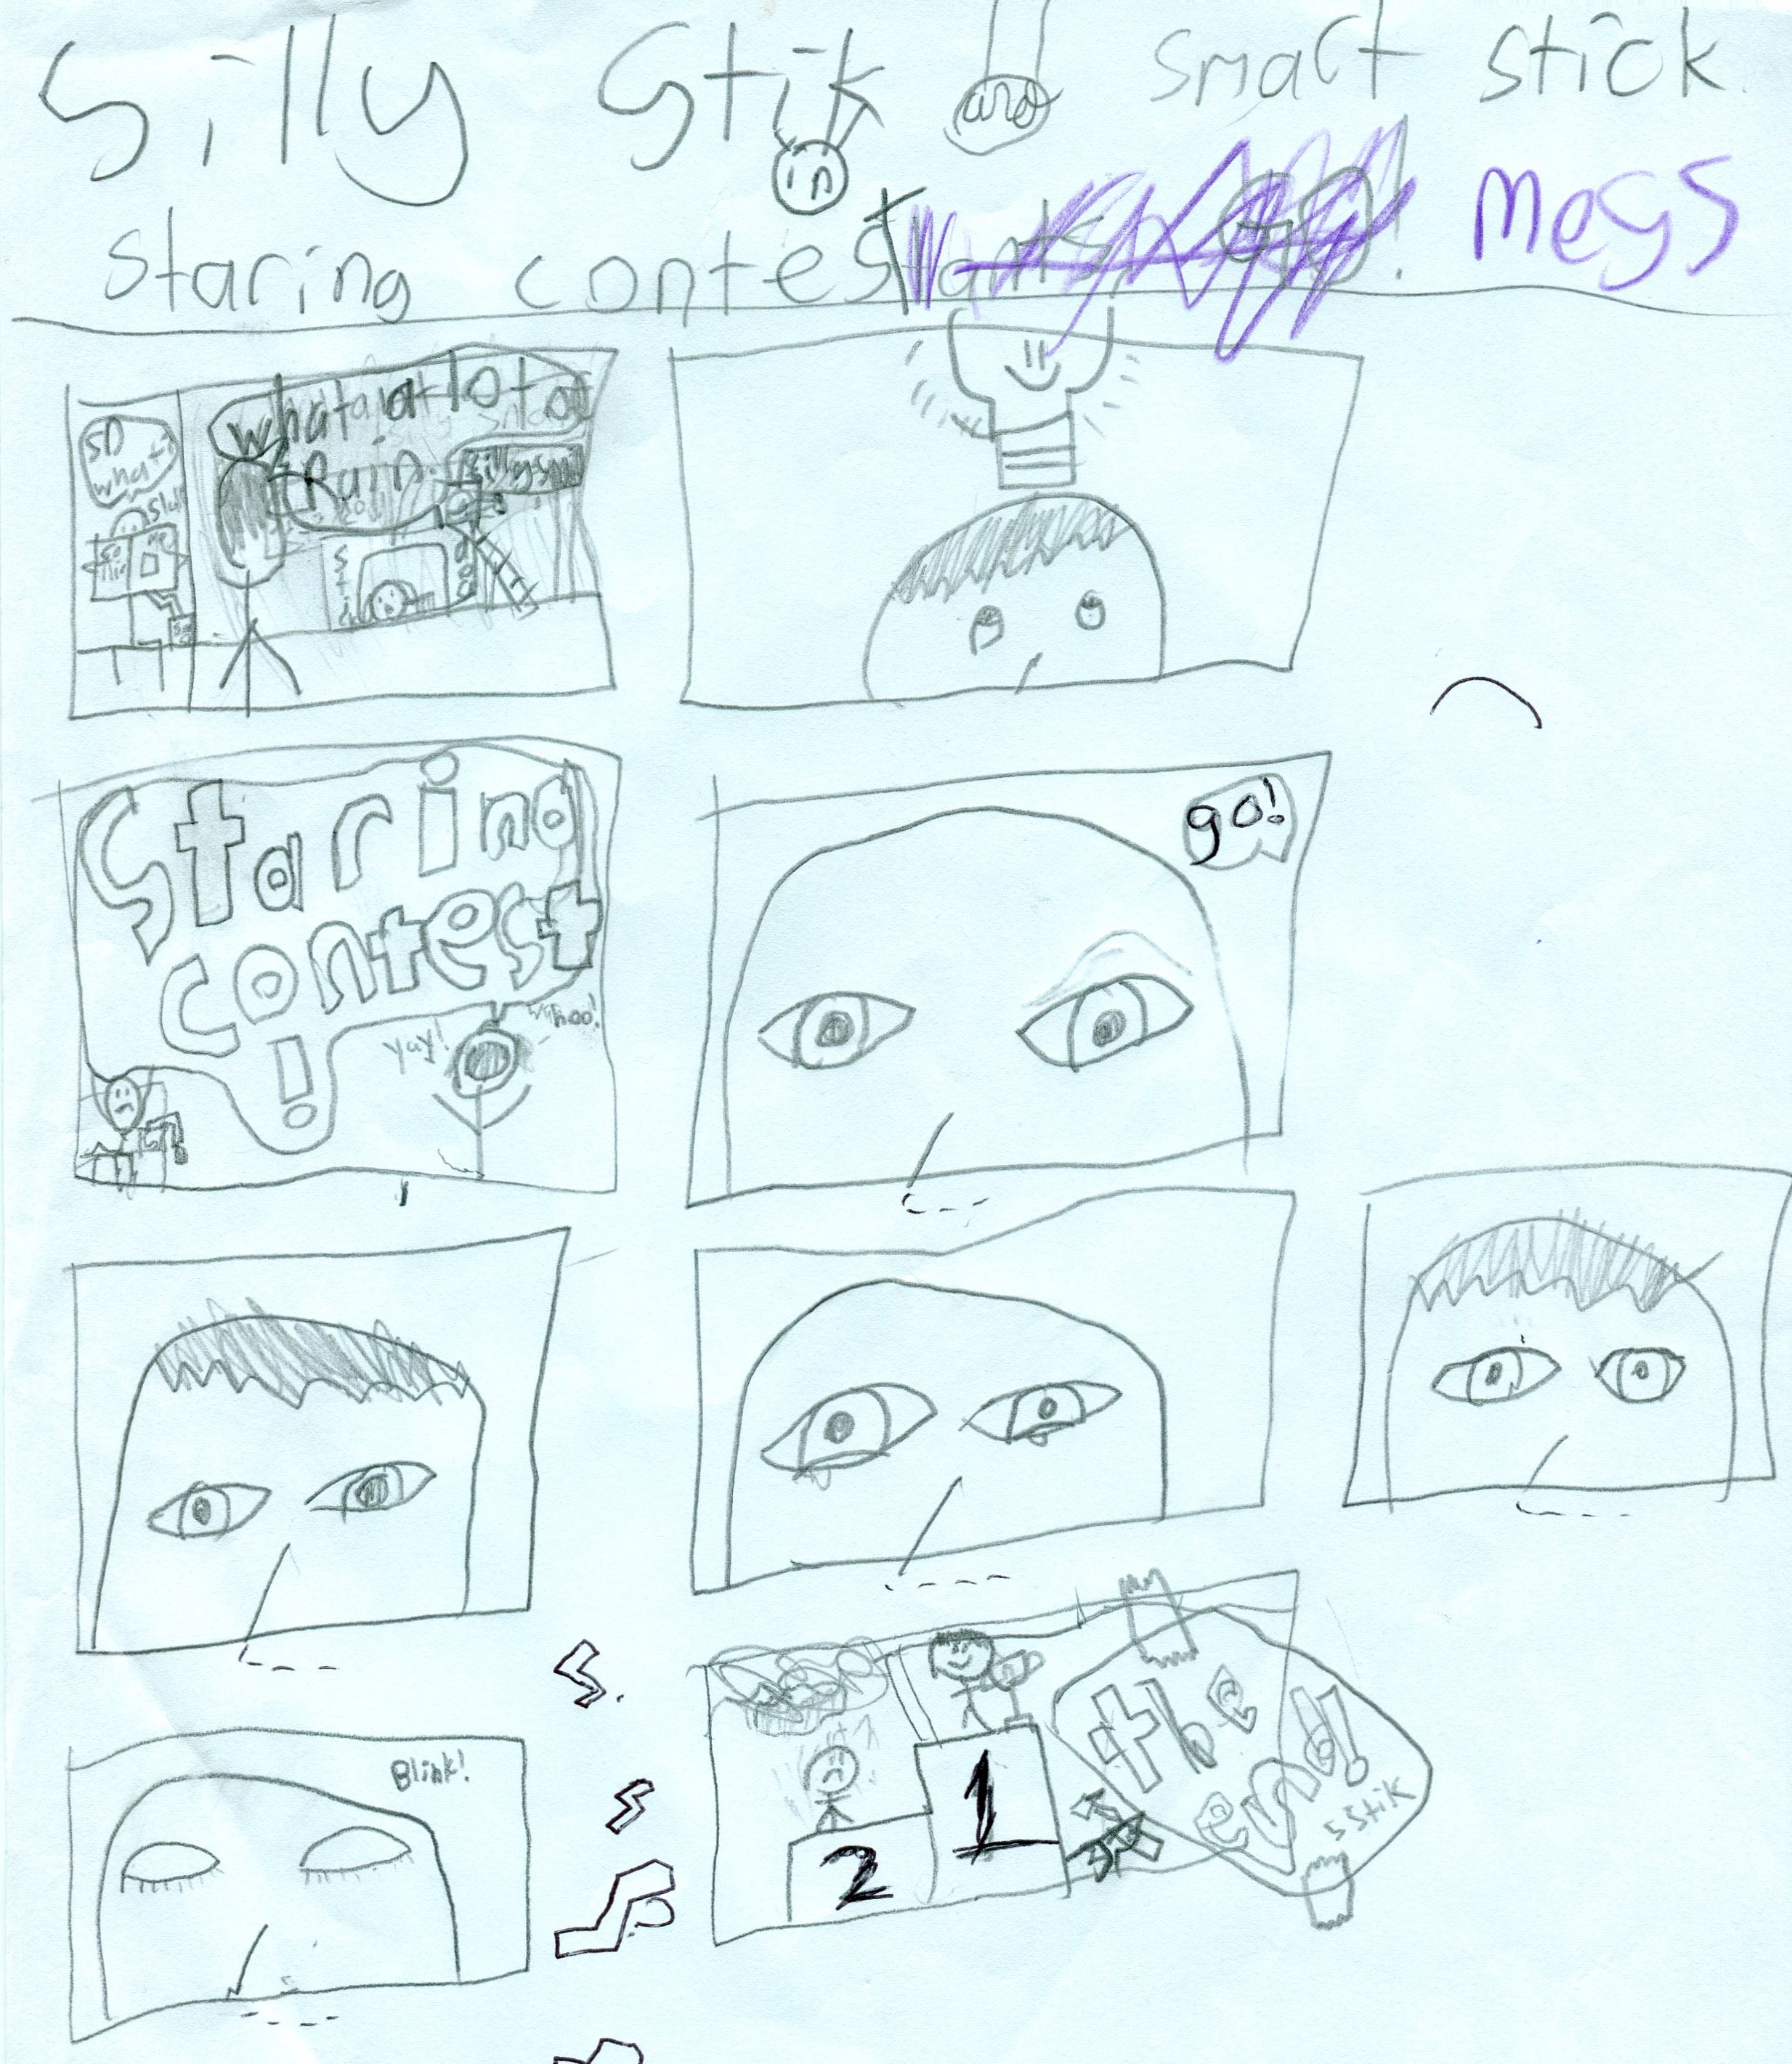 Silly Stik and smart stick
staring contest mess
SD what?
What a lot of
Rain.
Staring
contest
!
yay!
wahoo!
go!
Blink!
the
end!
S Stik
1
2